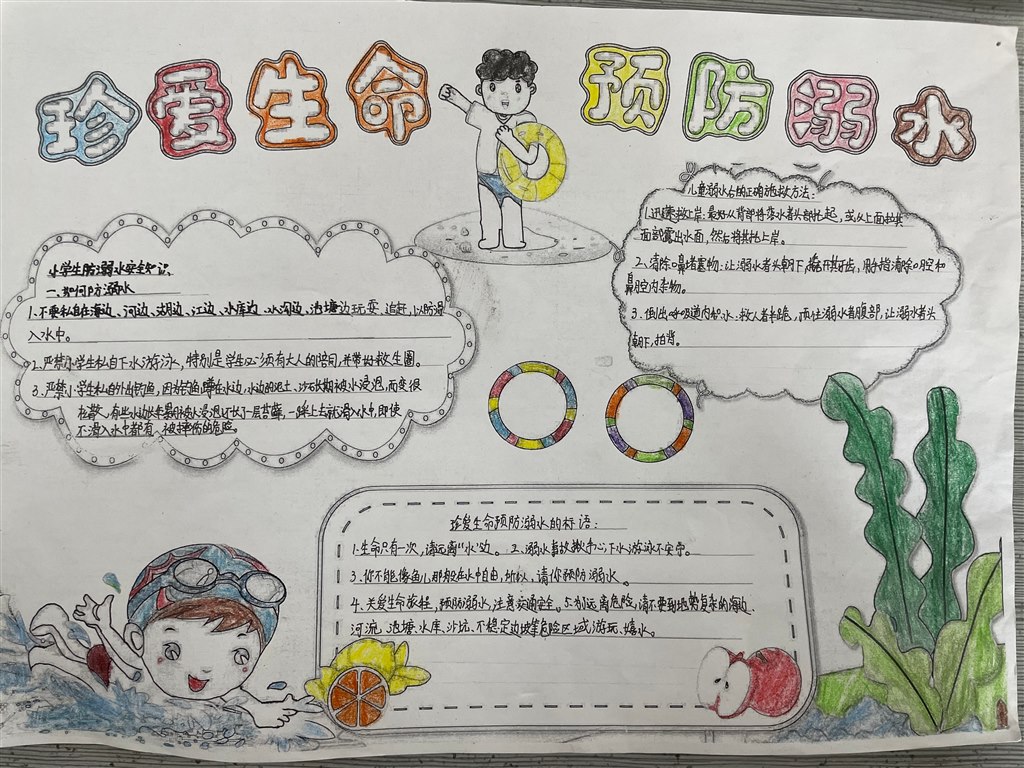 珍爱生命 预防溺水
小学生防溺水安全知识
一、如何防溺水
1.不要私自在海边、河边、湖边、江边、水库边、水沟边、池塘边玩耍、追赶,以防滑
入水中。
2.严禁小学生私自下水游泳,特别是学生必须有大人的陪同,并带好救生圈。
3.严禁小学生私自外出钓鱼,因为钓鱼蹲在水边,水边的泥土、沙石长期被水浸泡,而变很
松散,有些水边长年累月被水浸泡还长了一层苔藓,一踩上去就滑入水中,即使
不滑入水中都有 被摔伤的危险。
儿童溺水后的正确施救方法:
1.迅速救上岸:最好从背部将落水者头部托起,或从上面拉其
面部露出水面,然后将其拖上岸。
2、清除口鼻堵塞物:让溺水者头朝下,撬开其牙齿,用手指清除口腔和
鼻腔内杂物。
3、倒出呼吸道内积水:救人者半跪,顶住溺水者腹部,让溺水者头
朝下,拍背。
珍爱生命预防溺水的标语:
1.生命只有一次,请远离“水”边。 2、溺水事故揪人心,下水游泳不安宁。
3、你不能像鱼儿那般在水中自由,所以、请你预防溺水。
4、关爱生命旅程,预防溺水,注意交通安全。5.为远离危险,请不要到地势复杂的海边、
河流、池塘、水库、沙坑、不稳定边坡等危险区域游玩、嬉水。